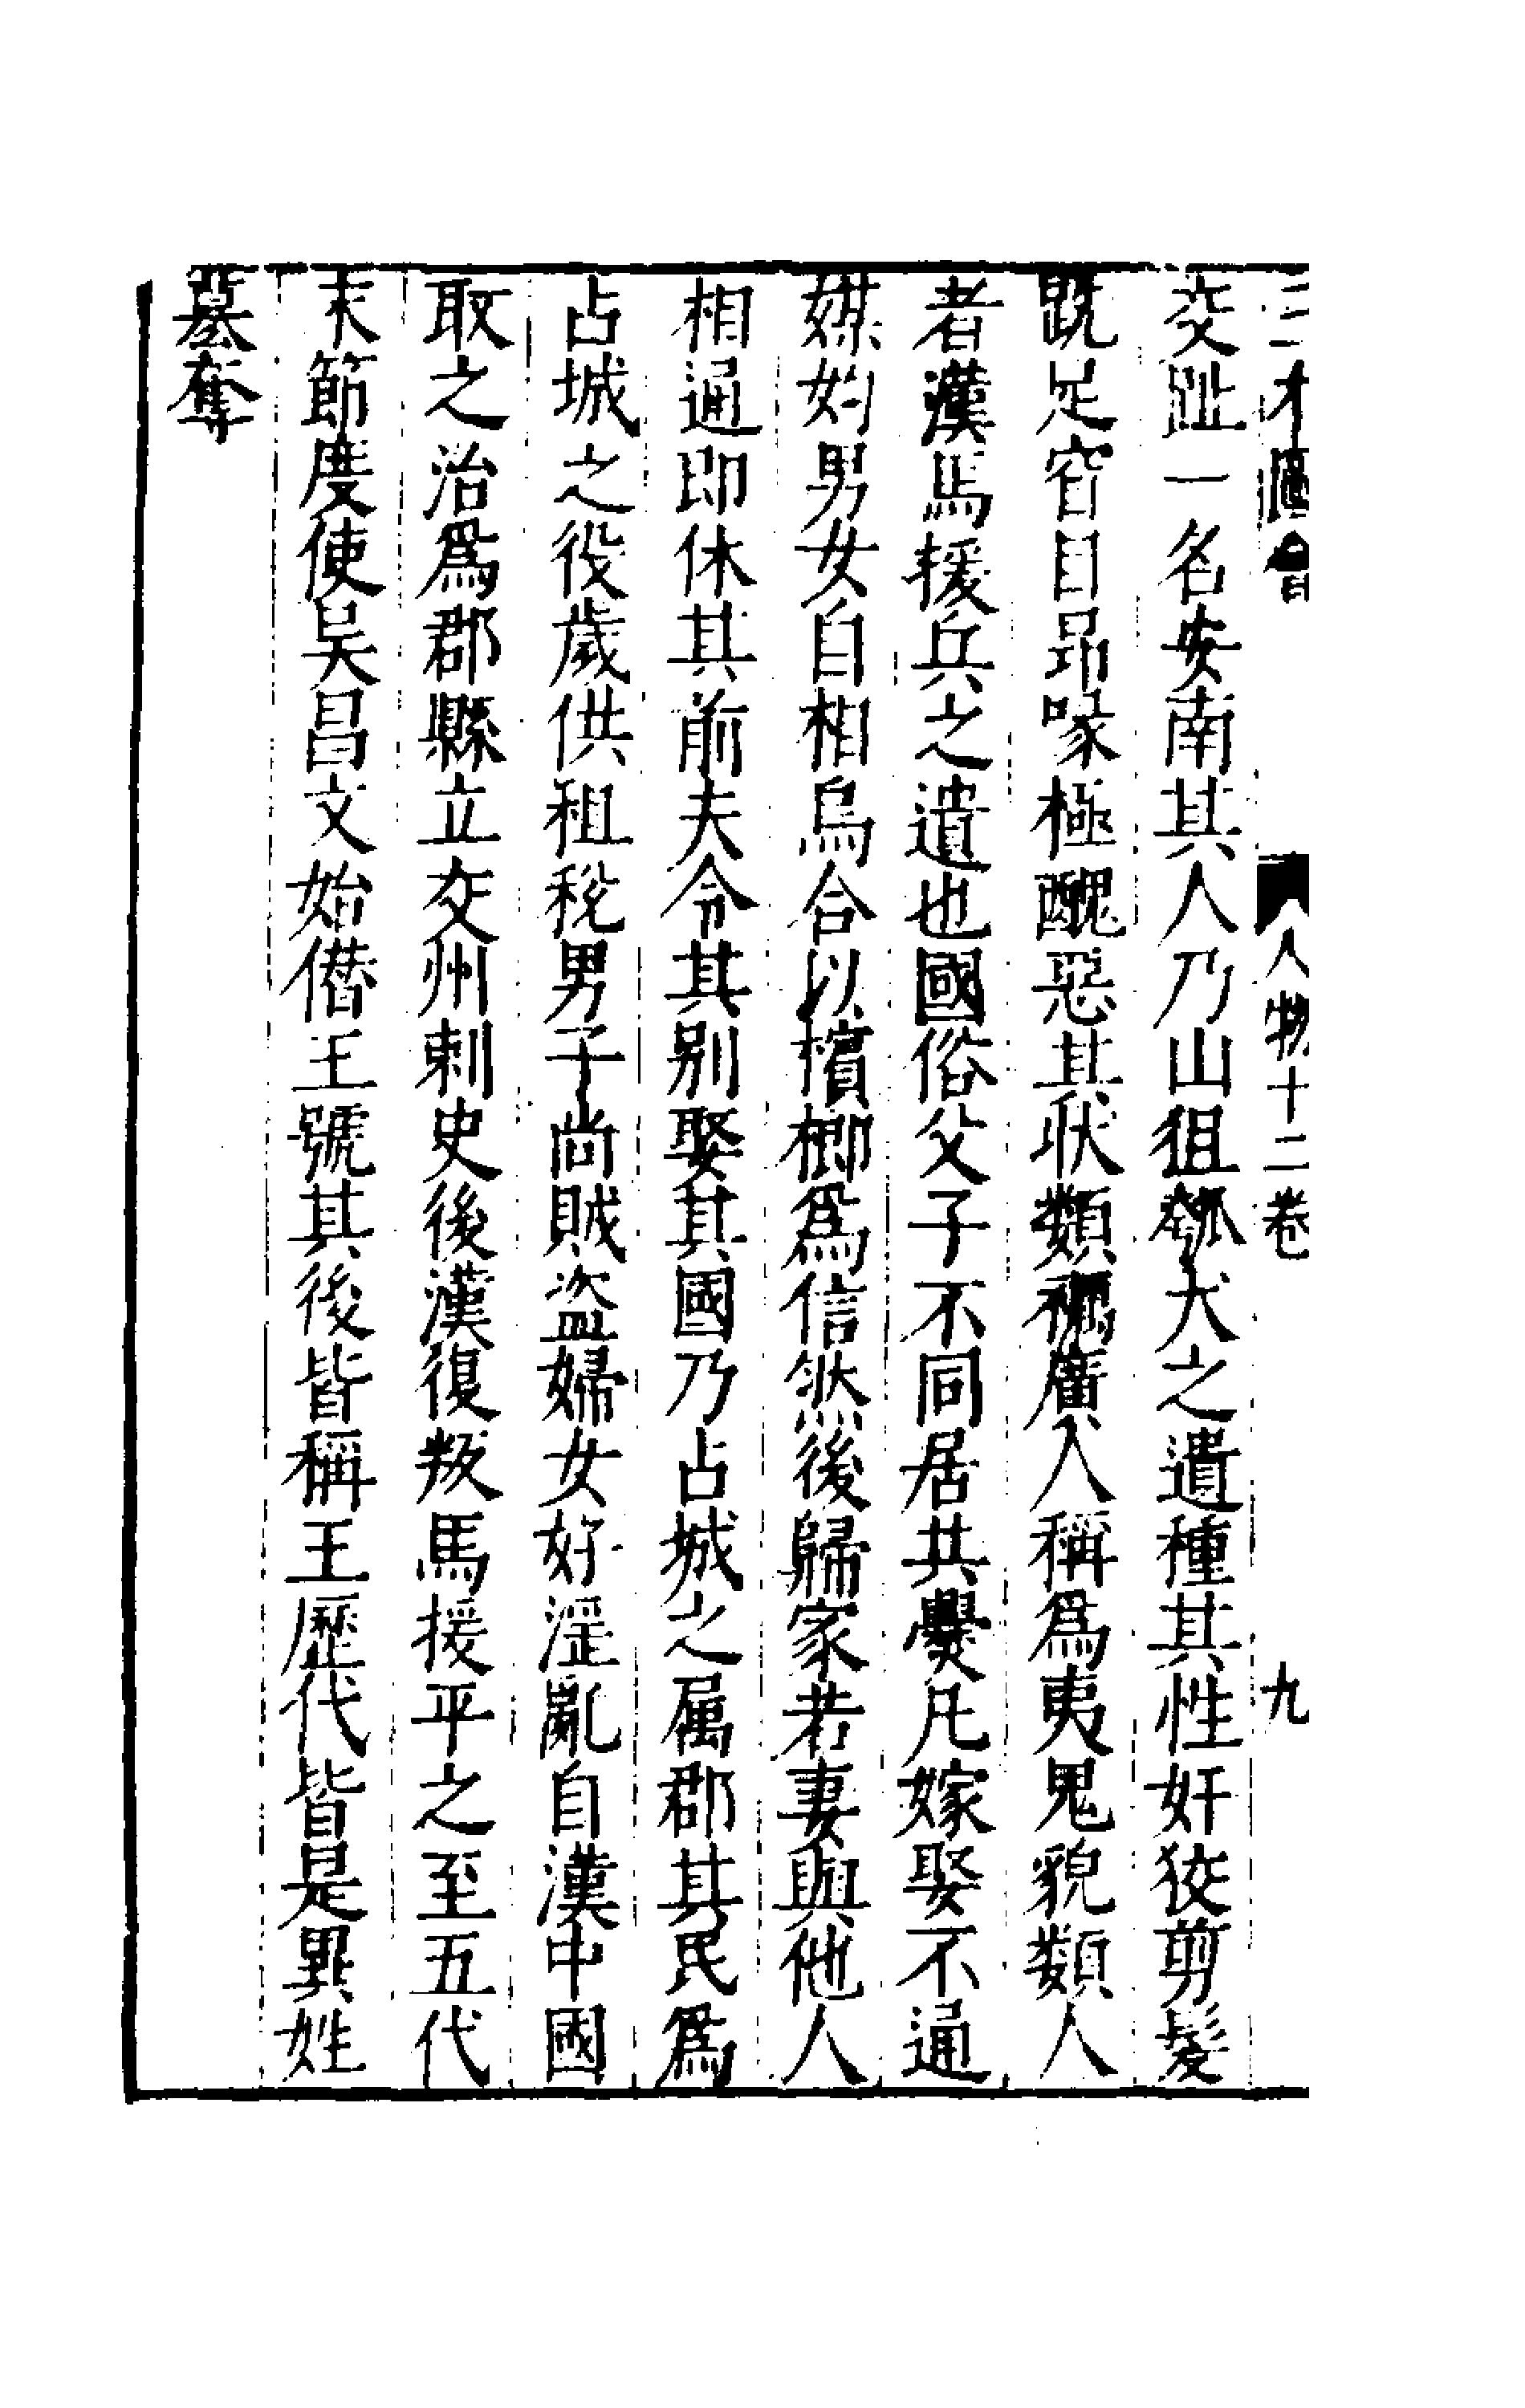 三才圖會 人物十二卷 九
交趾一名安南其人乃山狙瓠犬之遺種其性奸狡剪髮
跣足窅目昻喙極醜惡其狀類禍廣人稱爲夷鬼貌類人
者漢馬援兵之遺也國俗父子不同居共爨凡嫁娶不通
媒妁男女自相烏合以檳榔爲信然後歸家若妻與他人
相通即休其前夫令其别娶其國乃占城之属郡其民爲
占城之役歲供租稅男子尚賊盗婦女好淫亂自漢中國
取之治爲郡縣立交州刺史後漢復叛馬援平之至五代
末節度使吴昌文始僣王號其後皆稱王歷代皆是異姓
簒奪